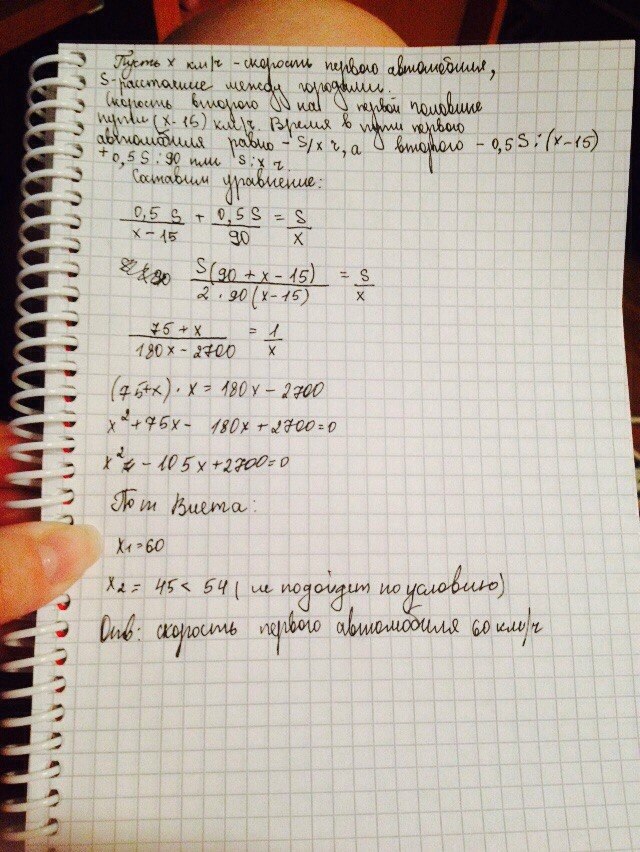 Пусть x км/ч - скорость первого автомобиля,
S-расстояние между городами.
Скорость второго на первой половине
пути (x-15) км/ч. Время в пути первого
автомобиля равно - S/x ч, а второго - 0,5S:(x-15)
+0,5S:90 или S:x ч.
Составим уравнение:
0,5 S / x-15 + 0,5 S / 90 = S / x
S(90 + x - 15) / 2 · 90 (x-15) = S / x
75 + x / 180x - 2700 = 1 / x
(75+x) · x = 180x - 2700
x² + 75x - 180x + 2700 = 0
x² - 105x + 2700 = 0
По т Виета:
x1 = 60
x2 = 45 < 54 ( не подойдет по условию)
Отв: скорость первого автомобиля 60 км/ч